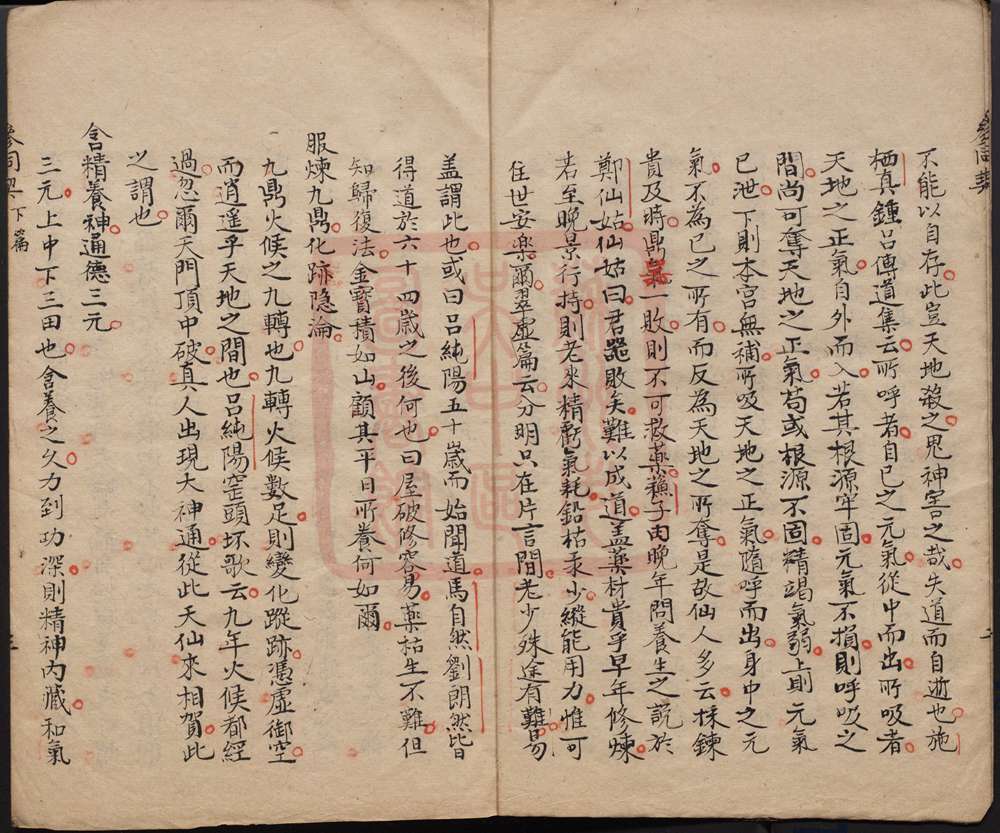 不能以自存此豈天地殺之鬼神害之哉失道而自逝也施
栖真鍾呂傳道集云所呼者自已之元氣從中而出所吸者
天地之正氣自外而入若其根源牢固元氣不損則呼吸之
間尚可奪天地之正氣苟或根源不固精竭氣弱上則元氣
已泄下則本宮無補所吸天地之正氣隨呼而出身中之元
氣不為已之所有而反為天地之所奪是故仙人多云採鍊
貴及時鼎氣一敗則不可救藥 子由晚年問養生之説於
鄭仙姑仙姑曰君噐敗矣難以成道盖藥材貴乎早年修煉
若至晚景行持則老來精虧氣耗鉛枯汞少縱能用力惟可
住世安樂爾翠虚篇云分明只在片言間老少殊途有難易
盖謂此也或曰呂純陽五十歲而始聞道馬自然劉朗然皆
得道於六十四歲之後何也曰屋破修容易藥枯生不難但
知歸復法金寳積如山顧其平日所養何如爾
服煉九鼎化跡隐淪
九鼎火候之九轉也九轉火候數足則變化蹤跡憑虚御空
而逍遥乎天地之間也呂純陽窑頭坏歌云九年火候都經
過忽爾天門頂中破真人出現大神通從此天仙來相賀此
之謂也
含精養神通德三元
三元上中下三田也含養之久力到功深則精神内藏和氣
參同契 下篇